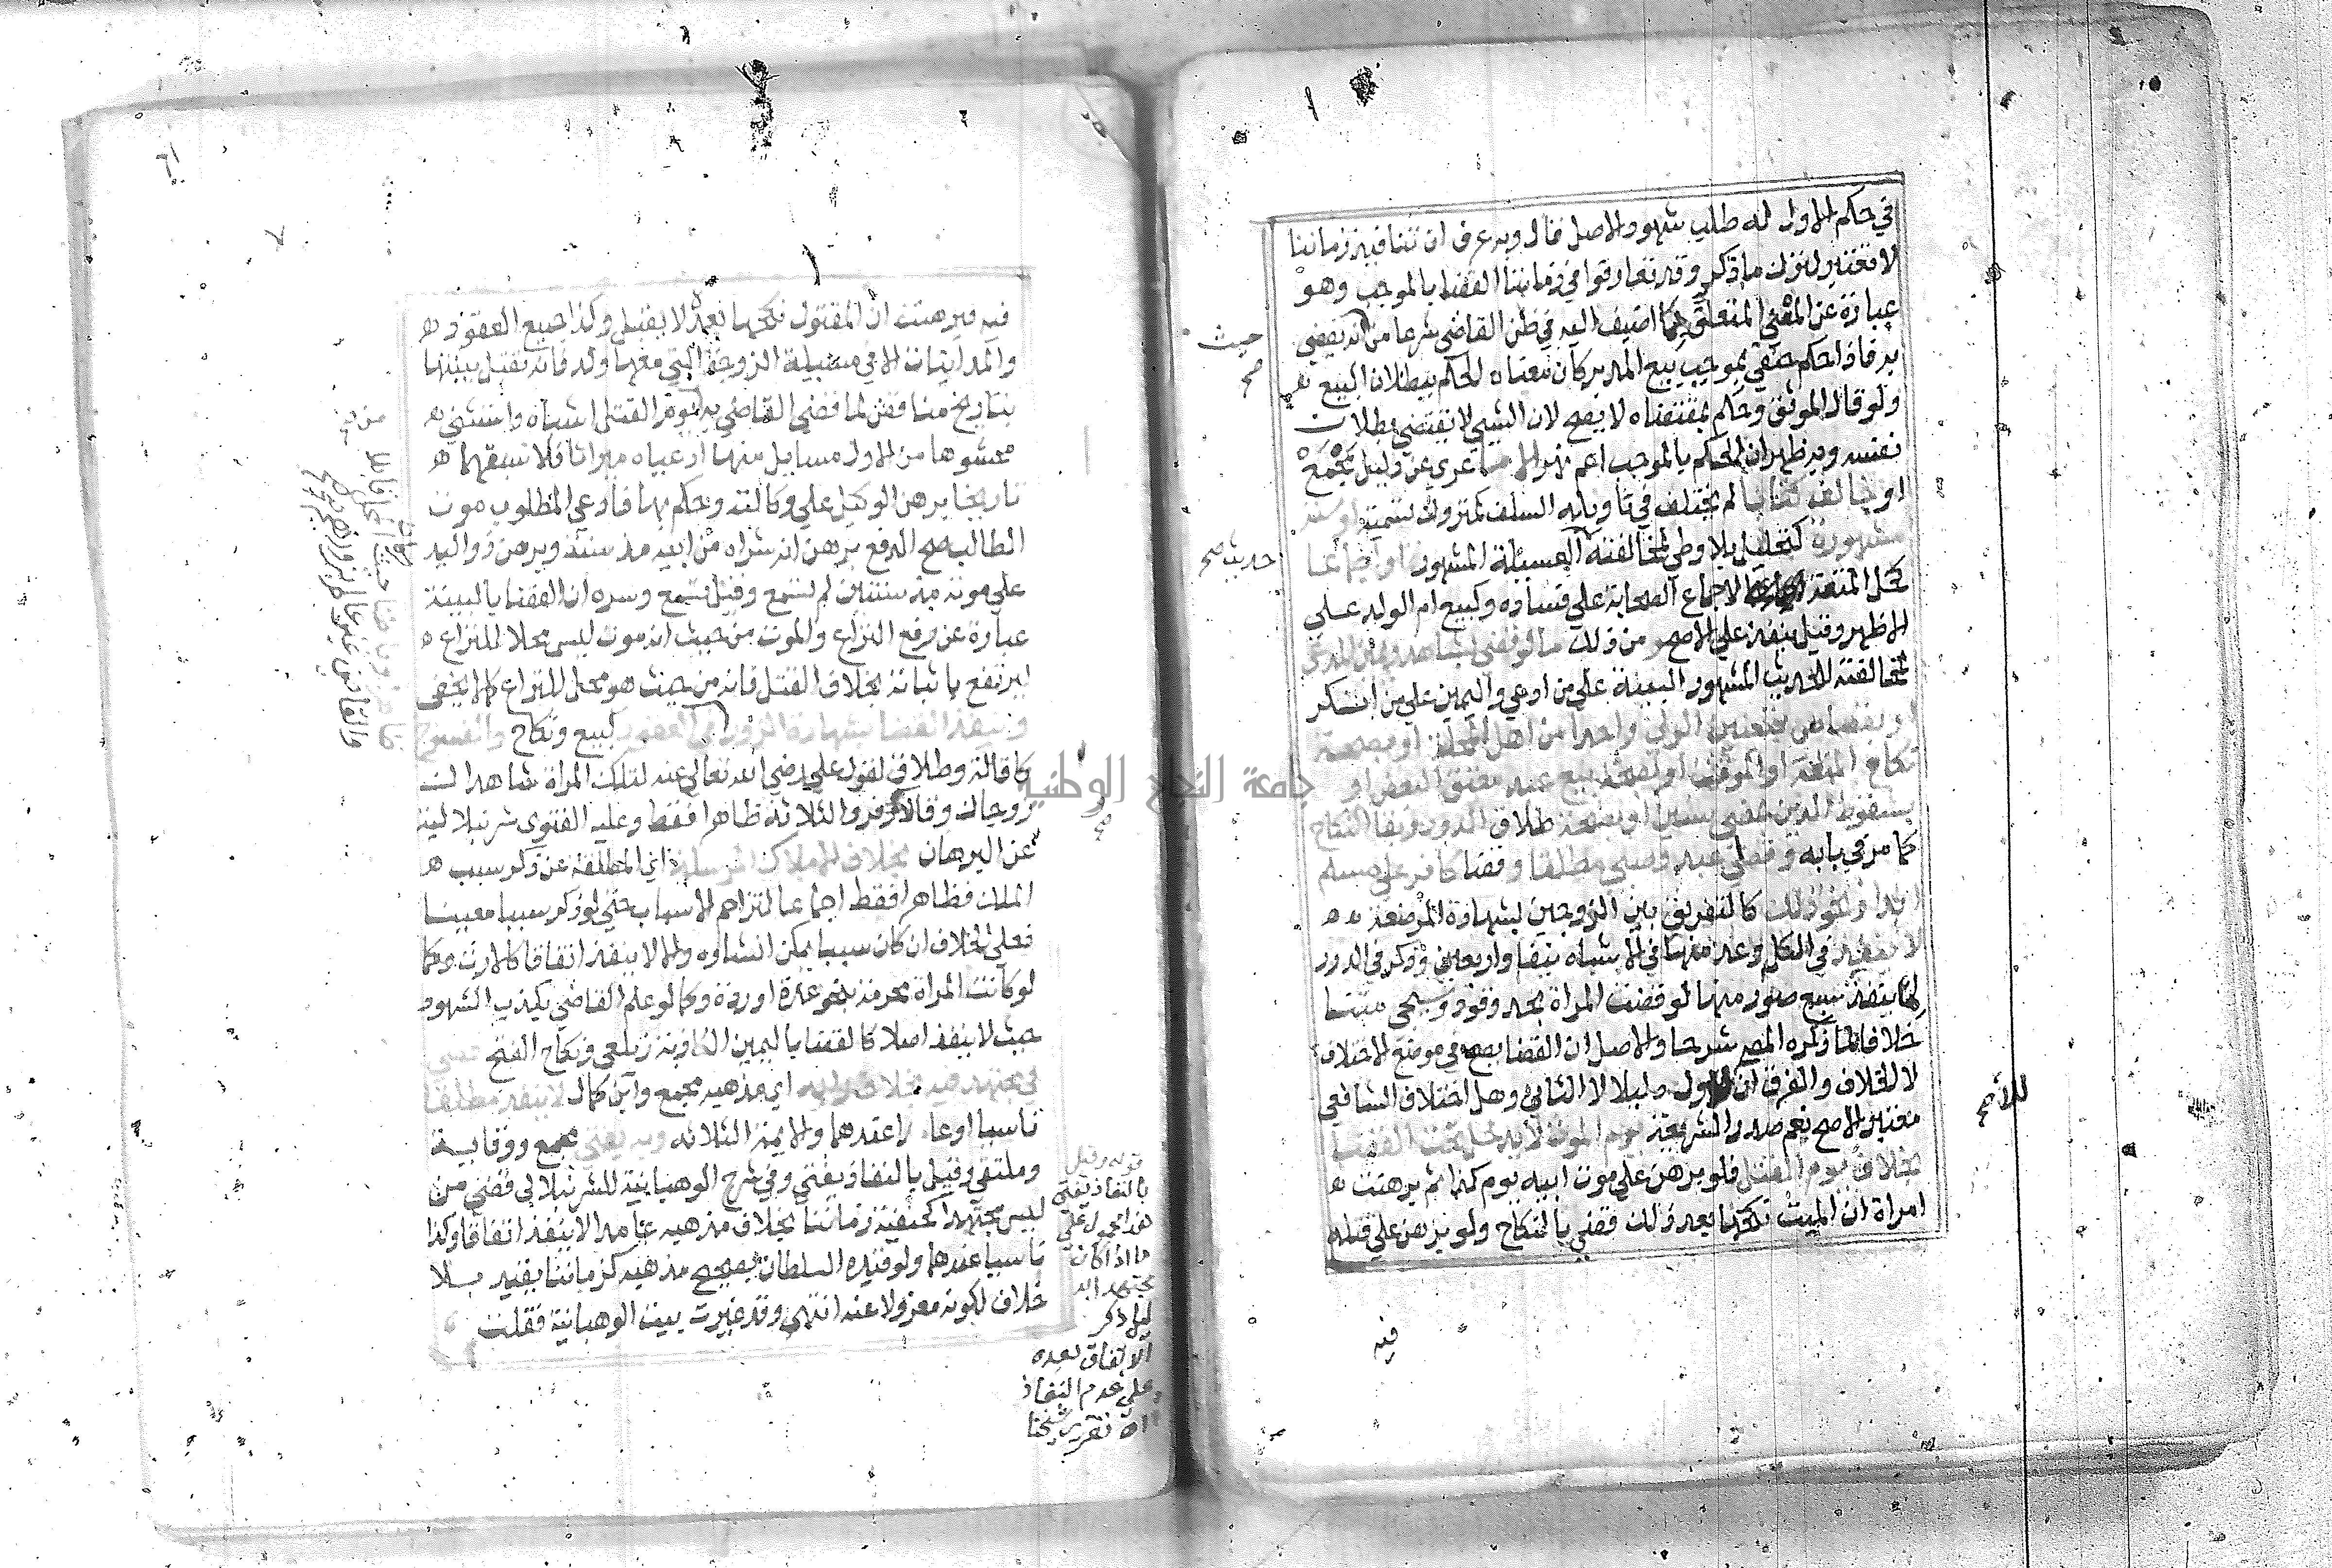 في حكم الاول له طلب شهود الاصل قال وبه عرف ان تنافيذ زماننا
لا تعتبر لترك ما ذكر وقد تعارفوا في زماننا القضا بالموجب وهو
عبارة عن المعنى المتعلق بما اضيف اليه في ظن القاضي شرعا من انه يقضي
به فاذا حكم حنفي بموجب بيع المدبر كان معناه الحكم ببطلان البيع
ولو قال الموثق وحكم بمقتضاه لا يصح لان الشيء لا يقتضي بطلان
نفسه وبه ظهر ان الحكم بالموجب اعم نهر الا ما عري عن دليل مجمع
او خالف كتابا لم يختلف في تاويله السلف كمتروك تسمية او سنة
مشهورة كتحليل بلا وطي لمخالفته العسيلة المشهور او اجماعا
كحل المتعة لاجماع الصحابة على فساده وكبيع ام الولد على
الاظهر وقيل ينفذ على الاصح ومن ذلك ما لو قضى بشاهد ويمين المدعي
لمخالفته للحديث المشهور البينة على من ادعى واليمين على من انكر
او بقصاص بتعيين الولي واحدا من اهل المحلة او بصحة
نكاح المتعة او الموقت او بصحة بيع عبد معتق البعض او
بسقوط الدين بمضي سنين او بصحة طلاق الدور وبقا النكاح
كما مر في بابه وقضى عبد وصبي مطلقا وقضا كافر على مسلم
ابدا ونحو ذلك كالتفريق بين الزوجين بشهادة المرضعة
لا ينفذ في الكل وعد منها في الاشباه نيفا واربعين وذكر في الدرر
لما ينفذ سبع صور منها لو قضت المراة بحد وقود وسيجي متنا
خلافا لما ذكره المص شرحا والاصل ان القضا يصح في موضع الاختلاف
لا الخلاف والفرق ان للاول دليلا لا الثاني وهل اختلاف الشافعي
معتبر الاصح نعم صدر الشريعة يوم الموت لا يدخل تحت القضا
بخلاف يوم القتل فلو برهن على موت ابيه يوم كذا ثم برهنت
امراة ان الميت نكحها بعد ذلك قضي بالنكاح ولو برهن على قتله
فيه
حيث
صح
حديث صح
للاول صح
فيه فبرهنت ان المقتول نكحها بعده لا يقبل وكذا جميع العقود
والمداينات الا في مسيلة الزوجة التي معها ولد فانه تقبل بينتها
بتاريخ مناقض لما قضي القاضي به يوم القتل اشباه واستثنى
محشوها من الاول مسايل منها ادعياه ميراثا فلاسبقهما
تاريخا برهن الوكيل على وكالته وحكم بها فادعى المطلوب موت
الطالب صح الدفع برهن انه شراه من ابيه مذ سنة وبرهن ذو اليد
على موته مذ سنتين لم تسمع وقيل تسمع وسره ان القضا بالبينة
عبارة عن رفع النزاع والموت من حيث انه موت ليس محلا للنزاع
ليرتفع باثباته بخلاف القتل فانه من حيث هو محل للنزاع كما لا يخفى
وينفذ القضا بشهادة الزور في العقود كبيع ونكاح والفسوخ
كاقالة وطلاق لقول علي رضي الله تعالى عنه لتلك المراة شاهداك
زوجاك وقالا وزفر والثلاثة ظاهرا فقط وعليه الفتوى شرنبلالية
عن البرهان بخلاف الاملاك المرسلة اي المطلقة عن ذكر سبب
الملك فظاهرا فقط اجماعا لتزاحم الاسباب حتى لو ذكر سببا معينا
فعلى الخلاف ان كان سببا يمكن انشاوه والا لا ينفذ اتفاقا كالارث وكما
لو كانت المراة محرمة بنحو عدة او ردة وكما لو علم القاضي بكذب الشهود
حيث لا ينفذ اصلا كالقضا باليمين الكاذبة زيلعي ونكاح الفتح قضى
في مجتهد فيه بخلاف رايه اي مذهبه مجمع وابن كمال لا ينفذ مطلقا
ناسيا او عامدا عندهما والايمة الثلاثة وبه يفتى مجمع ووقاية
وملتقى وقيل بالنفاذ يفتى وفي شرح الوهبانية للشرنبلالي قضى من
ليس مجتهدا كحنفية زماننا بخلاف مذهبه عامدا لا ينفذ اتفاقا وكذا
ناسيا عندهما ولو قيده السلطان بصحيح مذهبه كزماننا يقيد بلا
خلاف لكونه معزولا عنه انتهى وقد غيرت بيت الوهبانية فقلت
قوله وقيل
بالنفاذ يفتى
هذا محمول على
ما اذا كان
مجتهدا
ليل ذكر
الاتفاق بعده
على عدم النفاذ
اه تقرير شيخنا
جامعة النجاح الوطنية